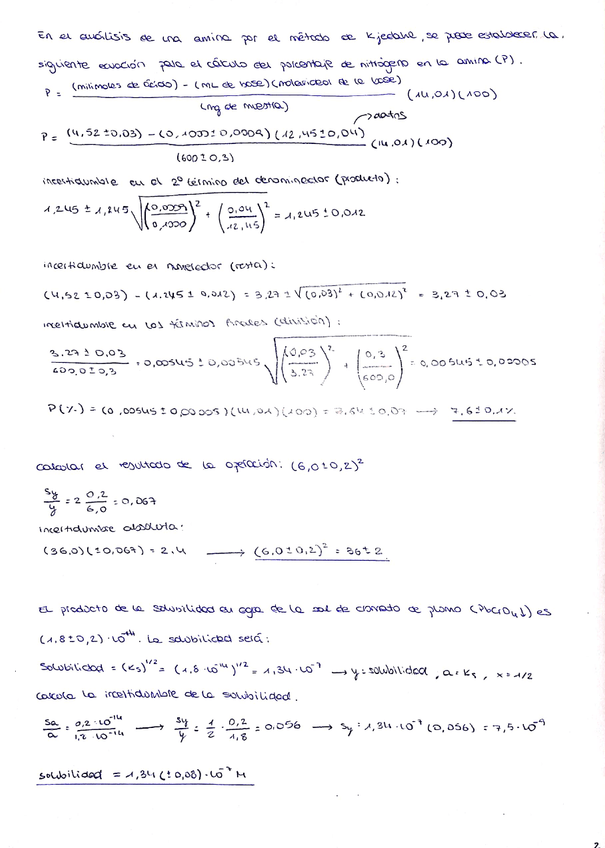 En el análisis de una amina por el método de Kjedahl, se puede establecer la
siguiente ecuación para el cálculo del porcentaje de nitrógeno en la amina (P).
P = (milimoles de ácido) - (mL de base)(molaridad de la base) / (mg de muestra) (14,01)(100)
datos
P = (4,52±0,03) - (0,1000±0,0009)(12,45±0,04) / (600±0,3) (14,01)(100)
incertidumbre en el 2º término del denominador (producto):
1,245 ± 1,245 √((0,0009/0,1000)² + (0,04/12,45)²) = 1,245 ± 0,012
incertidumbre en el numerador (resta):
(4,52 ± 0,03) - (1,245 ± 0,012) = 3,27 ± √((0,03)² + (0,012)²) = 3,27 ± 0,03
incertidumbre en los términos finales (división):
3.27 ± 0,03 / 600,0 ± 0,3 = 0,00545 ± 0,00545 √((0,03/3.27)² + (0,3/600,0)²) = 0,00545 ± 0,00005
P(%) = (0,00545 ± 0,00005)(14,01)(100) = 7,64 ± 0,07 → 7,6±0,1%
calcular el resultado de la operación: (6,0±0,2)²
Sy/y = 2 0,2/6,0 = 0,067
incertidumbre absoluta:
(36,0)(±0,067) = 2.4 → (6,0±0,2)² = 36±2
El producto de la solubilidad en agua de la sal de cromato de plomo (PbCrO₄↓) es
(1.8±0,2)·10⁻¹⁴. La solubilidad será:
Solubilidad = (Ks)^1/2 = (1,8·10⁻¹⁴)^1/2 = 1,34·10⁻⁷ → y = solubilidad, a = Ks, x = 1/2
calcula la incertidumbre de la solubilidad.
Sa/a = 0,2·10⁻¹⁴/1,8·10⁻¹⁴ → Sy/y = 1/2 · 0,2/1,8 = 0.056 → Sy = 1,34·10⁻⁷ (0,056) = 7,5·10⁻⁹
solubilidad = 1,34 (±0,08)·10⁻⁷ M
2.